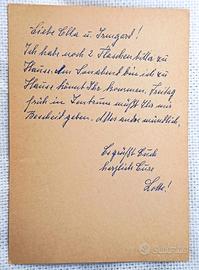 Liebe Ella u. Irmgard!
Ich habe noch 2 Flaschen bitte zu
Hause. den Sonabend bin ich zu
Hause könnt Ihr kommen. Freitag
früh im Zentrum müßt Ihr mir
Bescheid geben. Alles andre mündlich,
Es grüßt Euch
herzlich Eure
Lotte!
subito